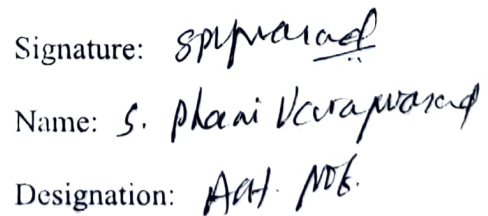 Signature: spvprasad
Name: S. Phani Varaprasad
Designation: